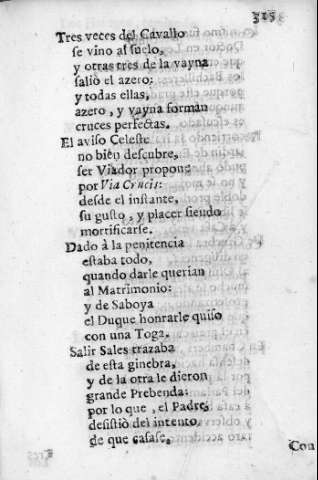 315
Tres veces del Cavallo
se vino al suelo,
y otras tres de la vayna
saliò el azero:
y todas ellas,
azero, y vayna forman
cruces perfectas.
El aviso Celeste
no bien descubre,
ser Viador propone
por Via Crucis:
desde el instante,
su gusto, y placer siendo
mortificarse.
Dado à la penitencia
estaba todo,
quando darle querian
al Matrimonio:
y de Saboya
el Duque honrarle quiso
con una Toga.
Salir Sales trazaba
de esta ginebra,
y de la otra le dieron
grande Prebenda:
por lo que, el Padre,
desistiò del intento
de que casase.
Con